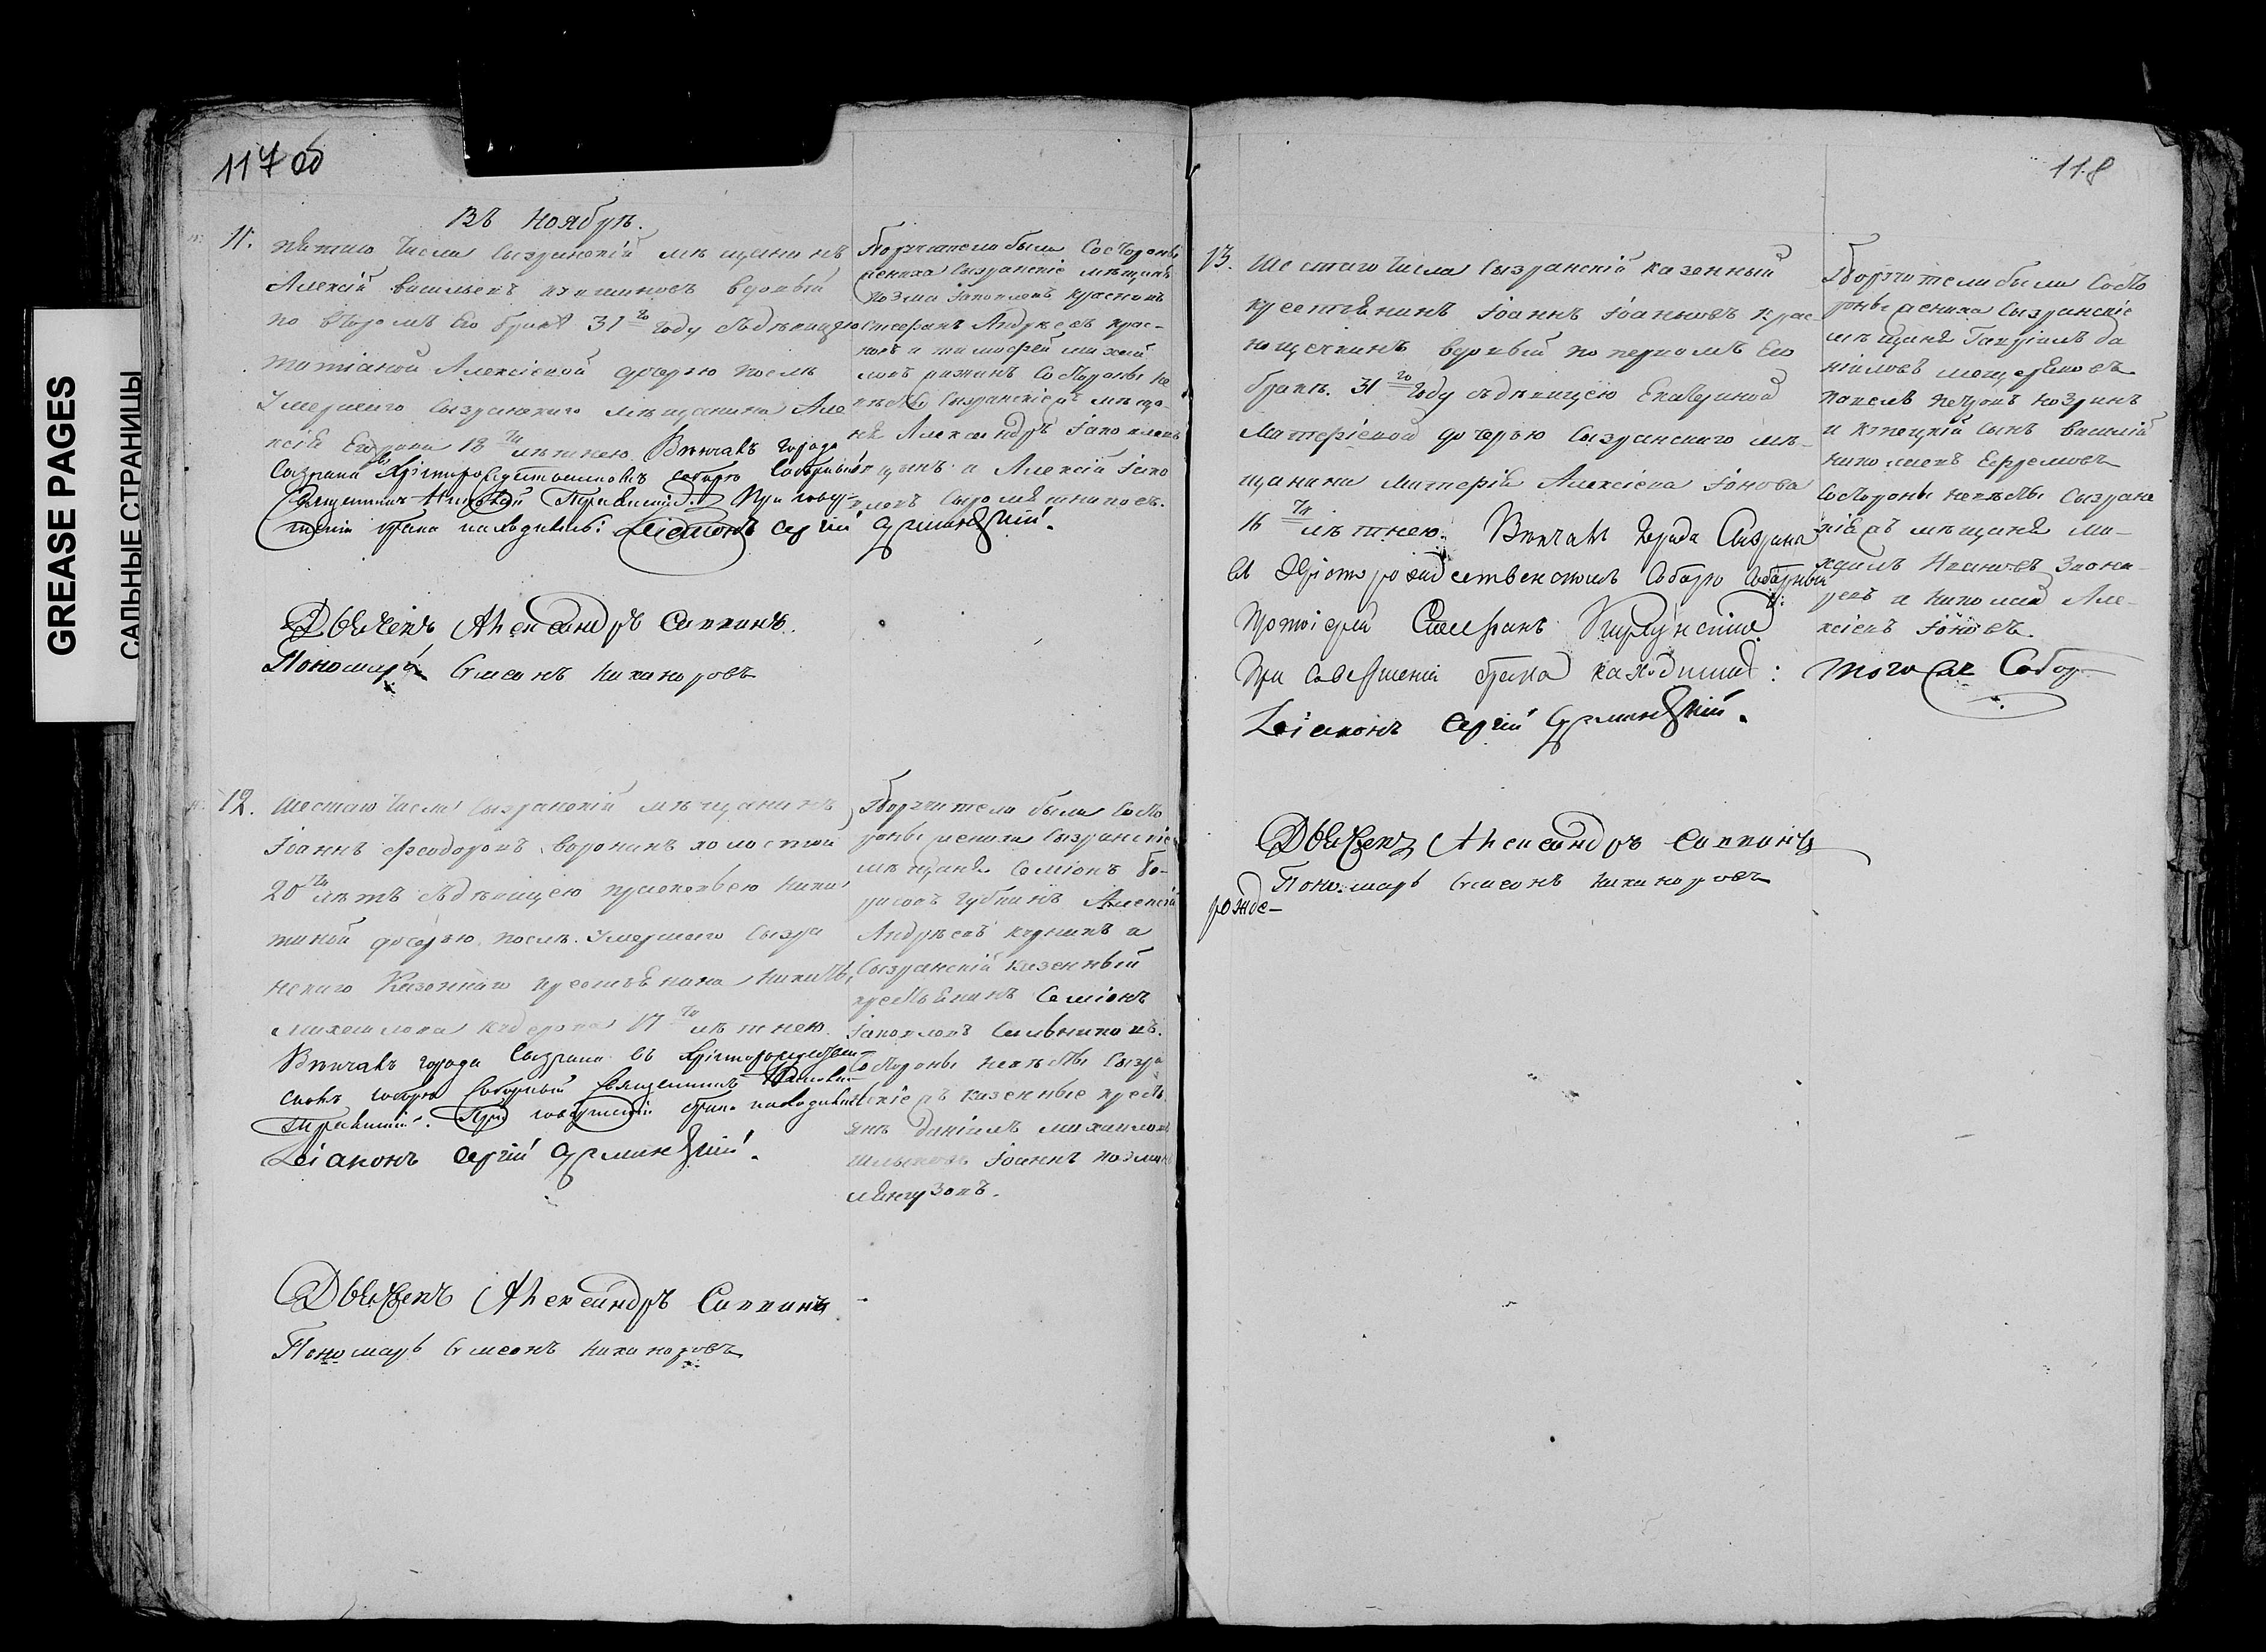 GREASE PAGES
САЛЬНЫЕ СТРАНИЦЫ
117 об
Въ Ноябрѣ.
11.
пятаго числа Сызранскій мѣщанинъ
Алексій Васильевъ вдовый
по второмъ его бракѣ 31 го году съ дѣвицею
татіаной Алексіевой дочерью послѣ
Умершаго Сызранскаго мѣщанина Але
ксія 18 ти лѣтнею Вѣнчалъ города
Сызрана Христорождественскаго собора Соборный
Священникъ При совер-
шеніи брака находились: Діаконъ Сергій
Дьячекъ Александръ Саккинъ
Пономарь Симеонъ Никаноровъ
Поручители были Состороны
жениха Сызранскіе мѣщане
Козма Іаковлевъ Красновъ
Стефанъ Андреевъ Крас-
новъ и тимофей михай
ловъ Состороны не
вѣсты Сызранскіежъ мѣща-
не Александръ Іаковлевъ
и Алексій Іако
влевъ Сыромятниковъ.
12.
Шестаго числа Сызранскій мѣщанинъ
Іоаннъ Феодоровъ Воронинъ холостой
20 ти лѣтъ съ дѣвицею прасковьею Ники
тиной дочерью послѣ Умершаго Сызра
нскаго Казеннаго крестьянина Никиты
Михайлова 17 ти лѣтнею
Вѣнчалъ города Сызрана въ Христорождествен-
скомъ соборѣ Соборный Священникъ
При совершеніи брака находились
Діаконъ Сергій
Дьячекъ Александръ Саккинъ
Пономарь Симеонъ Никаноровъ
Поручители были Состо
роны жениха Сызранскіе
мѣщане Семіонъ Бо-
рисовъ Губкинъ Алексій
Андреевъ и
Сызранскій казенный
крестьянинъ Семіонъ
Іаковлевъ Сильниковъ.
Состороны невѣсты Сызра
нскіежъ казенные кресть
яне Даніилъ михайловъ
Іоаннъ Козминъ
118
13.
Шестаго числа Сызранскій казенный
крестьянинъ Іоаннъ Іоанновъ Крас-
нощекинъ вдовый по первомъ его
бракѣ. 31 го году съ дѣвицею Екатериной
Матфіевой дочерью Сызранскаго мѣ-
щанина Матфія Алексіева Іонова
16 ти лѣтнею. Вѣнчалъ города Сызрана
въ Христорождественскомъ Соборѣ Соборный
Протоіерей Стефанъ
При совершеніи брака находились: того же Собора
Діаконъ Сергій
Дьячекъ Александръ Саккинъ
Пономарь Симеонъ Никаноровъ
рожде-
Поручители были Состо
роны жениха Сызранскіе
мѣщане Гавріилъ Да
ніиловъ мещеряковъ
Павелъ Петровъ Козринъ
и Купецкій сынъ Василій
Николаевъ Ефремовъ
Состороны невѣсты Сызран
скіежъ мѣщане Ми-
хаилъ Ивановъ Звона-
ревъ и Николай Але-
ксіевъ Іоновъ.